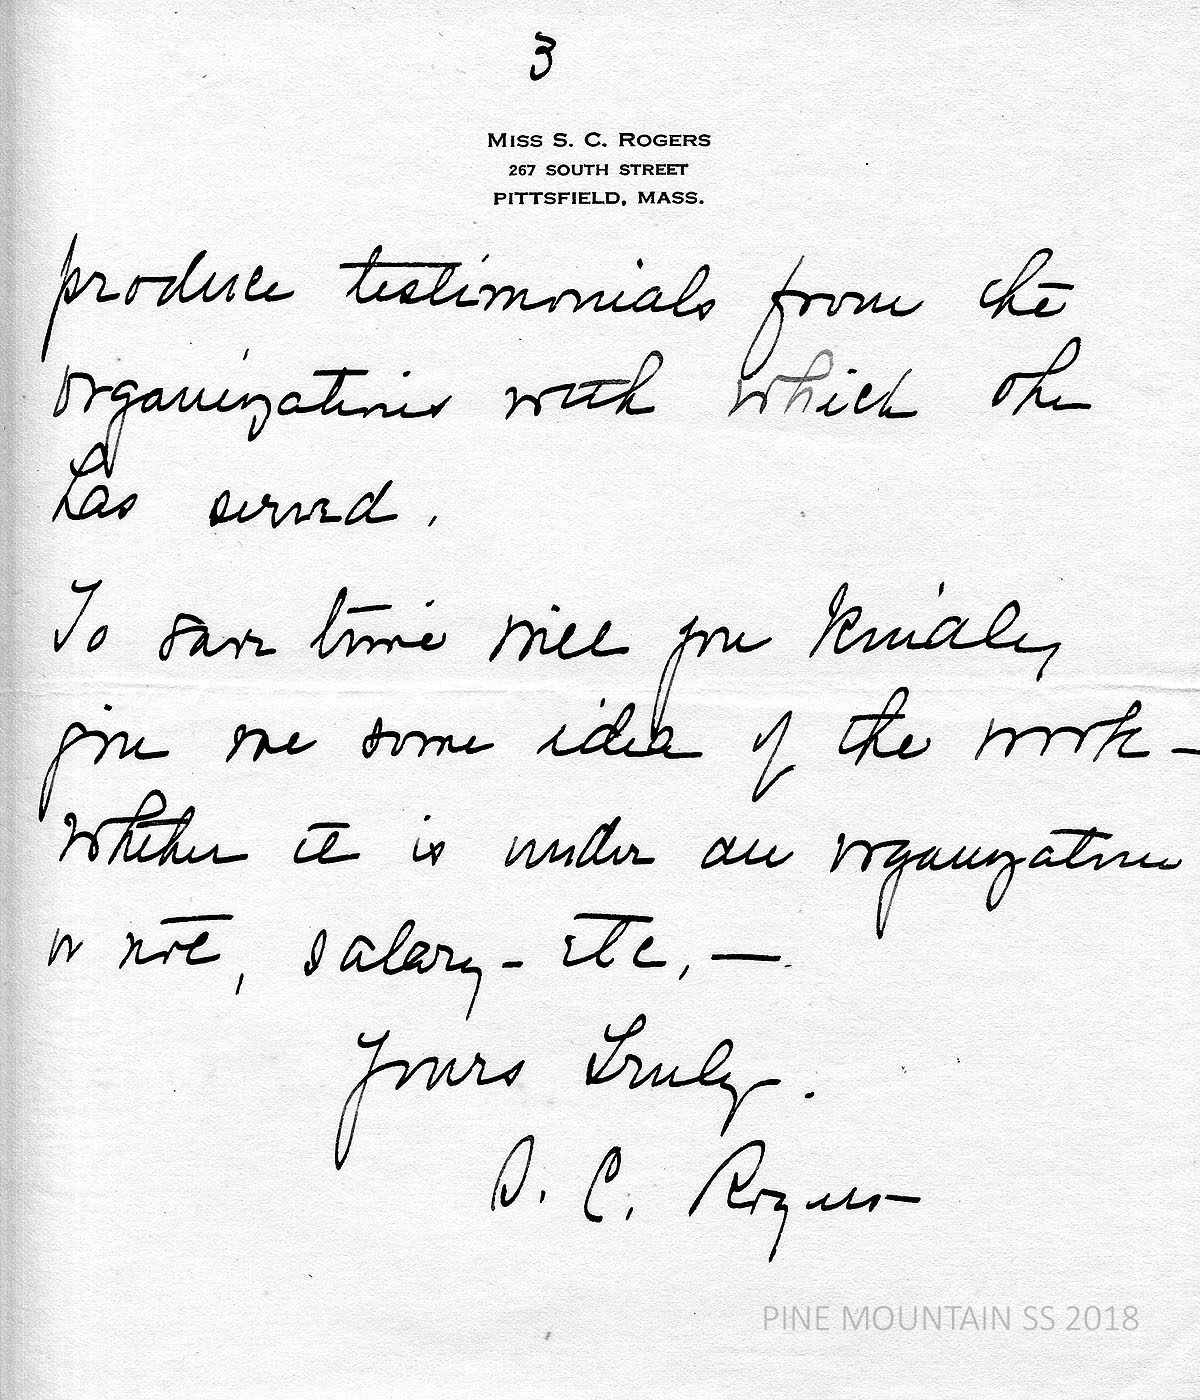 3
MISS S. C. ROGERS
267 SOUTH STREET
PITTSFIELD, MASS.
produce testimonials from the
organizations with which she
has served.
To save time will you kindly
give me some idea of the work -
whether it is under an organization
or not, salary - etc, —
Yours truly.
S. C. Rogers
PINE MOUNTAIN SS 2018